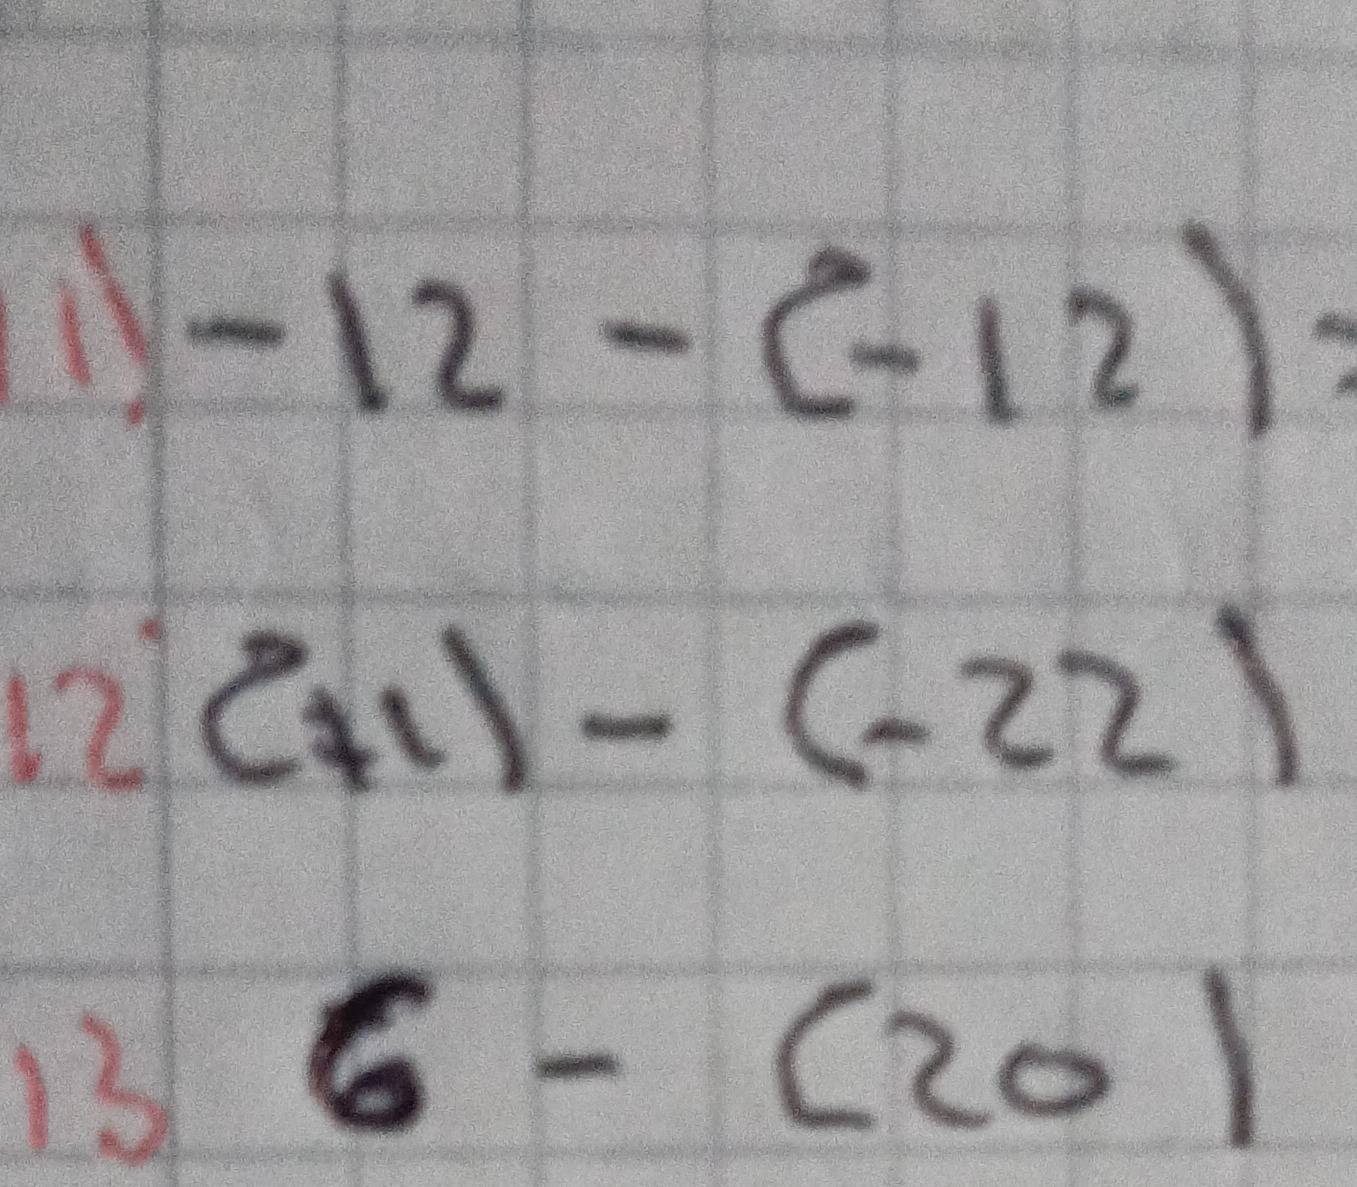 11) -12 - (-12) =
12 (+1) - (-22)
13 6 - (20)